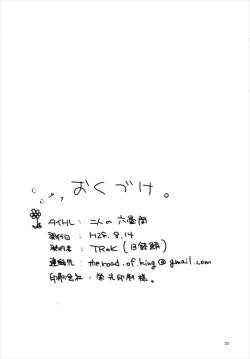 おくづけ。
タイトル：二人の六畳間
発行日：H28.8.14
発行者：TRoK（日
連絡先：the.road.of.king@gmail.com
印刷会社：栄光印刷様。
30